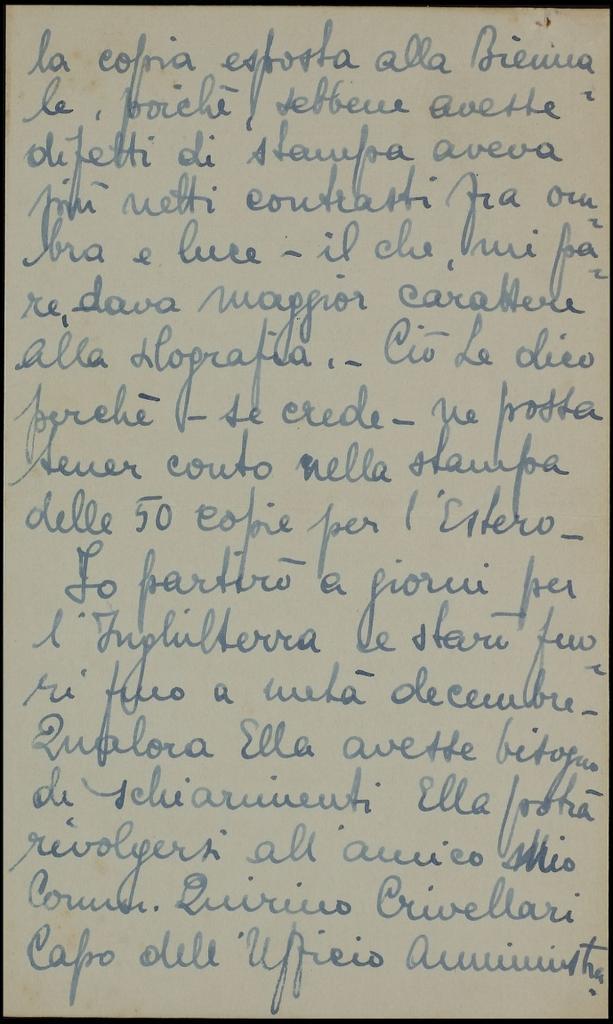 la copia esposta alla Bienna=
le, poichè, sebbene avesse
difetti di stampa aveva
più netti contrasti fra om=
bra e luce - il che, mi pa=
re, dava maggior carattere
alla silografia. - Ciò Le dico
perchè - se crede - ne possa
tener conto nella stampa
delle 50 copie per l'Estero -
Io partirò a giorni per
l'Inghilterra e starò fuo=
ri fino a metà decembre -
Qualora Ella avesse bisogno
di schiarimenti Ella potrà
rivolgersi all'amico Mio
Comm. Quirino Crivellari
Capo dell'Ufficio Amministra=